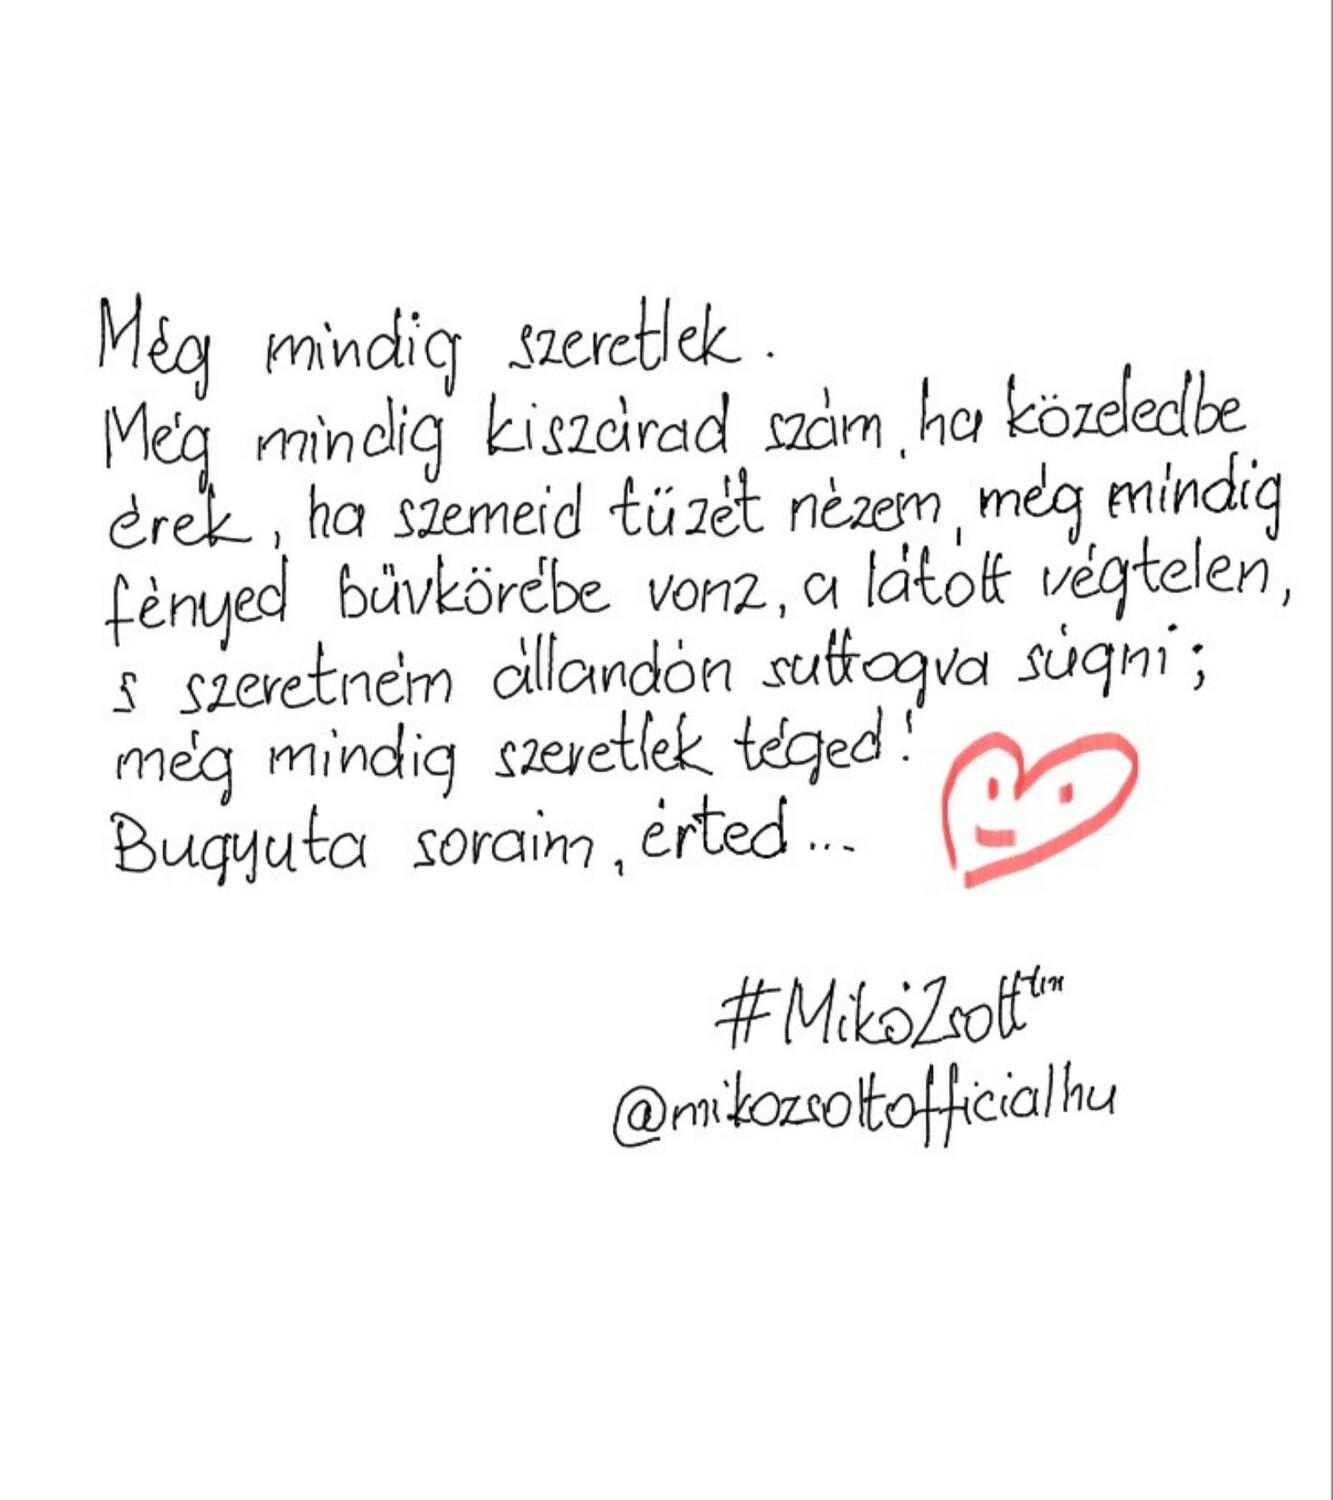 Még mindig szeretlek.
Még mindig kiszárad szám, ha közeledbe
érek, ha szemeid tüzét nézem, még mindig
fényed büvkörébe vonz, a látott végtelen,
s szeretném állandón suttogva súgni;
még mindig szeretlek téged!
Bugyuta soraim, érted...
#MikóZsolt tm
@mikozsoltofficialhu